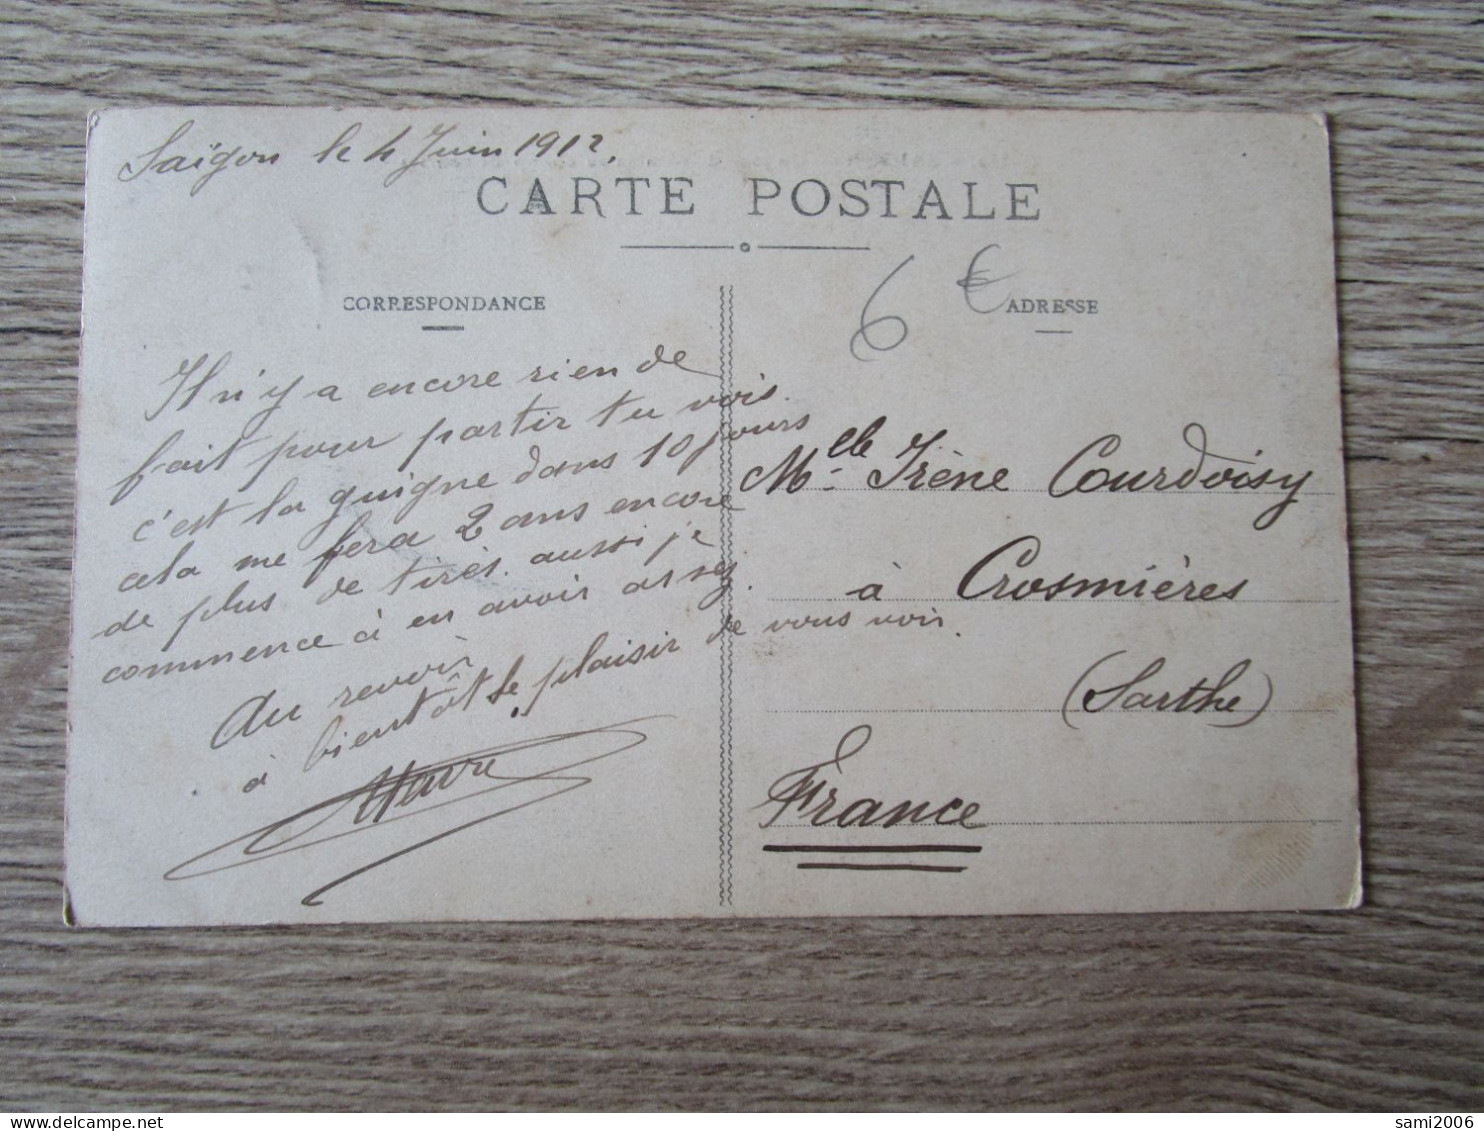 Saïgon le 4 Juin 1912.
CARTE POSTALE
6 €
CORRESPONDANCE
ADRESSE
Il n'y a encore rien de
fait pour partir tu vois.
c'est la guigne dans 10 jours
cela me fera 2 ans encore
de plus de tirés. aussi je
commence à en avoir assez.
Au revoir
à bientôt le plaisir de vous voir.
Mlle Irène Courdoisy
à Crosmières
(Sarthe)
France
sami2006